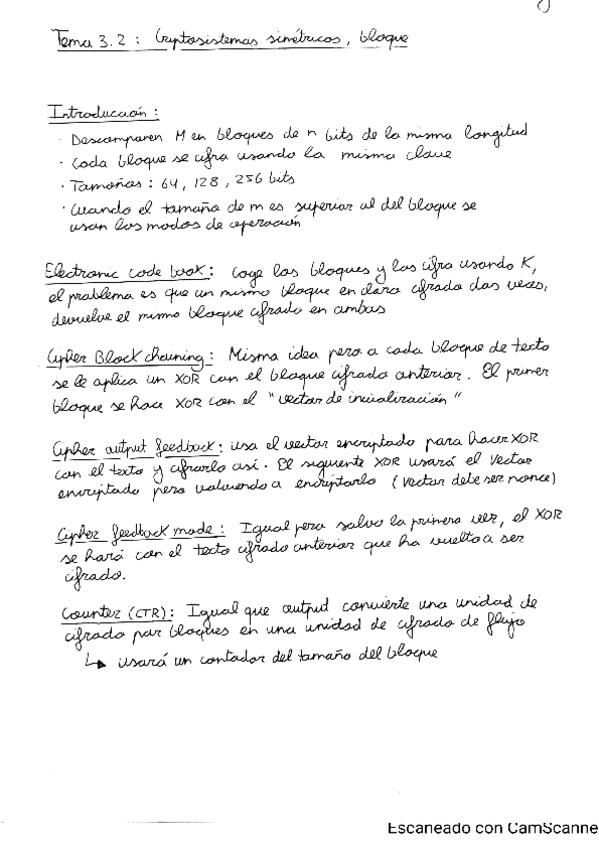 Tema 3.2 : Criptosistemas simétricos, bloque
Introducción :
· Descomponen M en bloques de n bits de la misma longitud
· Cada bloque se cifra usando la misma clave
· Tamaños : 64, 128, 256 bits
· Cuando el tamaño de m es superior al del bloque se
usan los modos de operación
Electronic code book : Coge los bloques y los cifra usando K,
el problema es que un mismo bloque en claro cifrado dos veces,
devuelve el mismo bloque cifrado en ambas
Cipher Block chaining : Misma idea pero a cada bloque de texto
se le aplica un XOR con el bloque cifrado anterior. El primer
bloque se hace XOR con el "vector de inicialización"
Cipher output feedback : usa el vector encriptado para hacer XOR
con el texto y cifrarlo así. El siguiente XOR usará el vector
encriptado pero volviendo a encriptarlo (vector debe ser nonce)
Cipher feedback mode : Igual pero salvo la primera vez, el XOR
se hará con el texto cifrado anterior que ha vuelto a ser
cifrado.
Counter (CTR) : Igual que output convierte una unidad de
cifrado por bloques en una unidad de cifrado de flujo
↳ usará un contador del tamaño del bloque
Escaneado con CamScanne